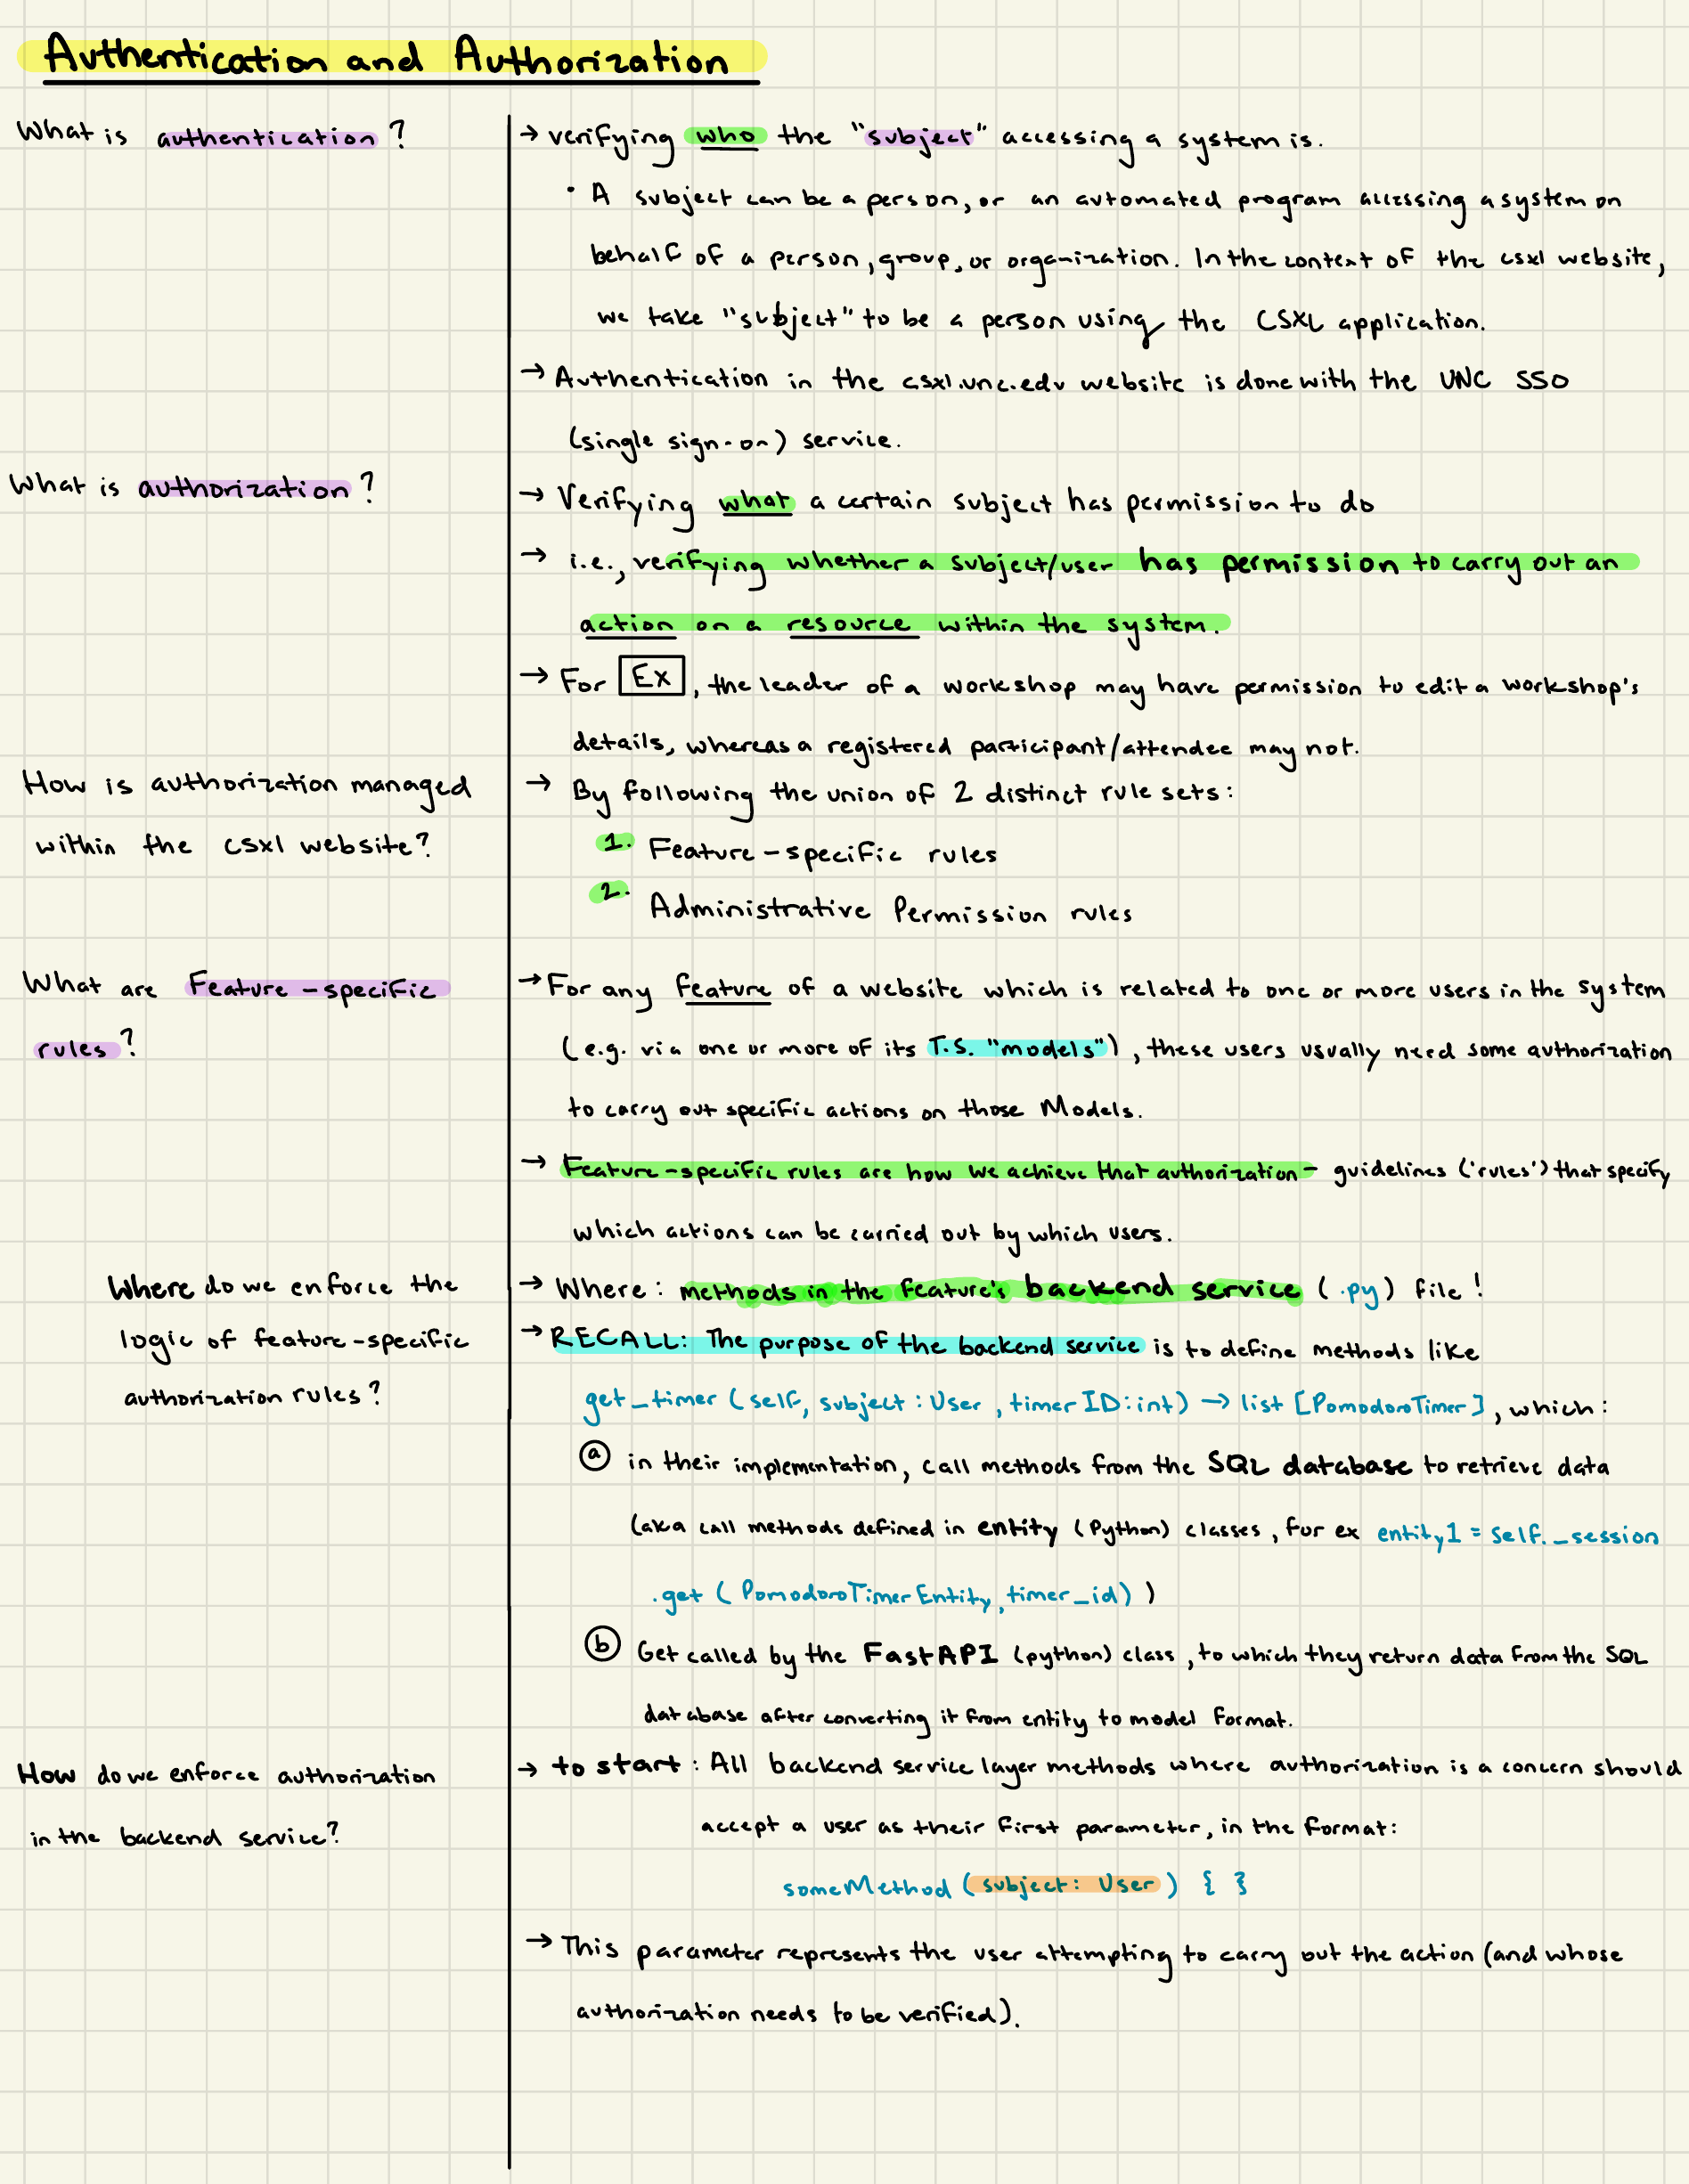 Authentication and Authorization
What is authentication?
→ verifying who the "subject" accessing a system is.
• A subject can be a person, or an automated program accessing a system on
behalf of a person, group, or organization. In the context of the csxl website,
we take "subject" to be a person using the CSXL application.
→ Authentication in the csxl.unc.edu website is done with the UNC SSO
(single sign-on) service.
What is authorization?
→ Verifying what a certain subject has permission to do
→ i.e., verifying whether a subject/user has permission to carry out an
action on a resource within the system.
→ For Ex, the leader of a workshop may have permission to edit a workshop's
details, whereas a registered participant/attendee may not.
How is authorization managed
within the csxl website?
→ By following the union of 2 distinct rule sets:
1. Feature-specific rules
2. Administrative Permission rules
What are Feature-specific
rules?
→ For any feature of a website which is related to one or more users in the system
(e.g. via one or more of its T.S. "models"), these users usually need some authorization
to carry out specific actions on those Models.
→ Feature-specific rules are how we achieve that authorization - guidelines ('rules') that specify
which actions can be carried out by which users.
Where do we enforce the
logic of feature-specific
authorization rules?
→ Where: methods in the feature's backend service (.py) file!
→ RECALL: The purpose of the backend service is to define methods like
get_timer (self, subject: User, timerID: int) → list [PomodoroTimer], which:
(a) in their implementation, call methods from the SQL database to retrieve data
(aka call methods defined in entity (Python) classes, for ex entity1 = self._session
.get (PomodoroTimerEntity, timer_id))
(b) Get called by the FastAPI (python) class, to which they return data from the SQL
database after converting it from entity to model format.
How do we enforce authorization
in the backend service?
→ to start: All backend service layer methods where authorization is a concern should
accept a user as their first parameter, in the format:
someMethod (subject: User) { }
→ This parameter represents the user attempting to carry out the action (and whose
authorization needs to be verified).